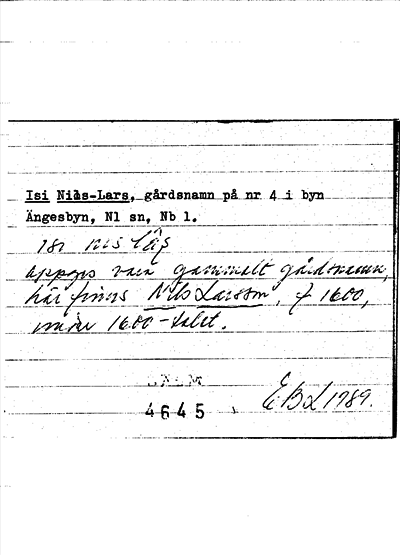 Isi Nils-Lars, gårdsnamn på nr 4 i byn
Ängesbyn, Nl sn, Nb l.
isi nis läs
uppges vara gammalt gårdsnamn,
här finns Nils Larsson, f 1600,
under 1600-talet.
4645
EBL 1989.